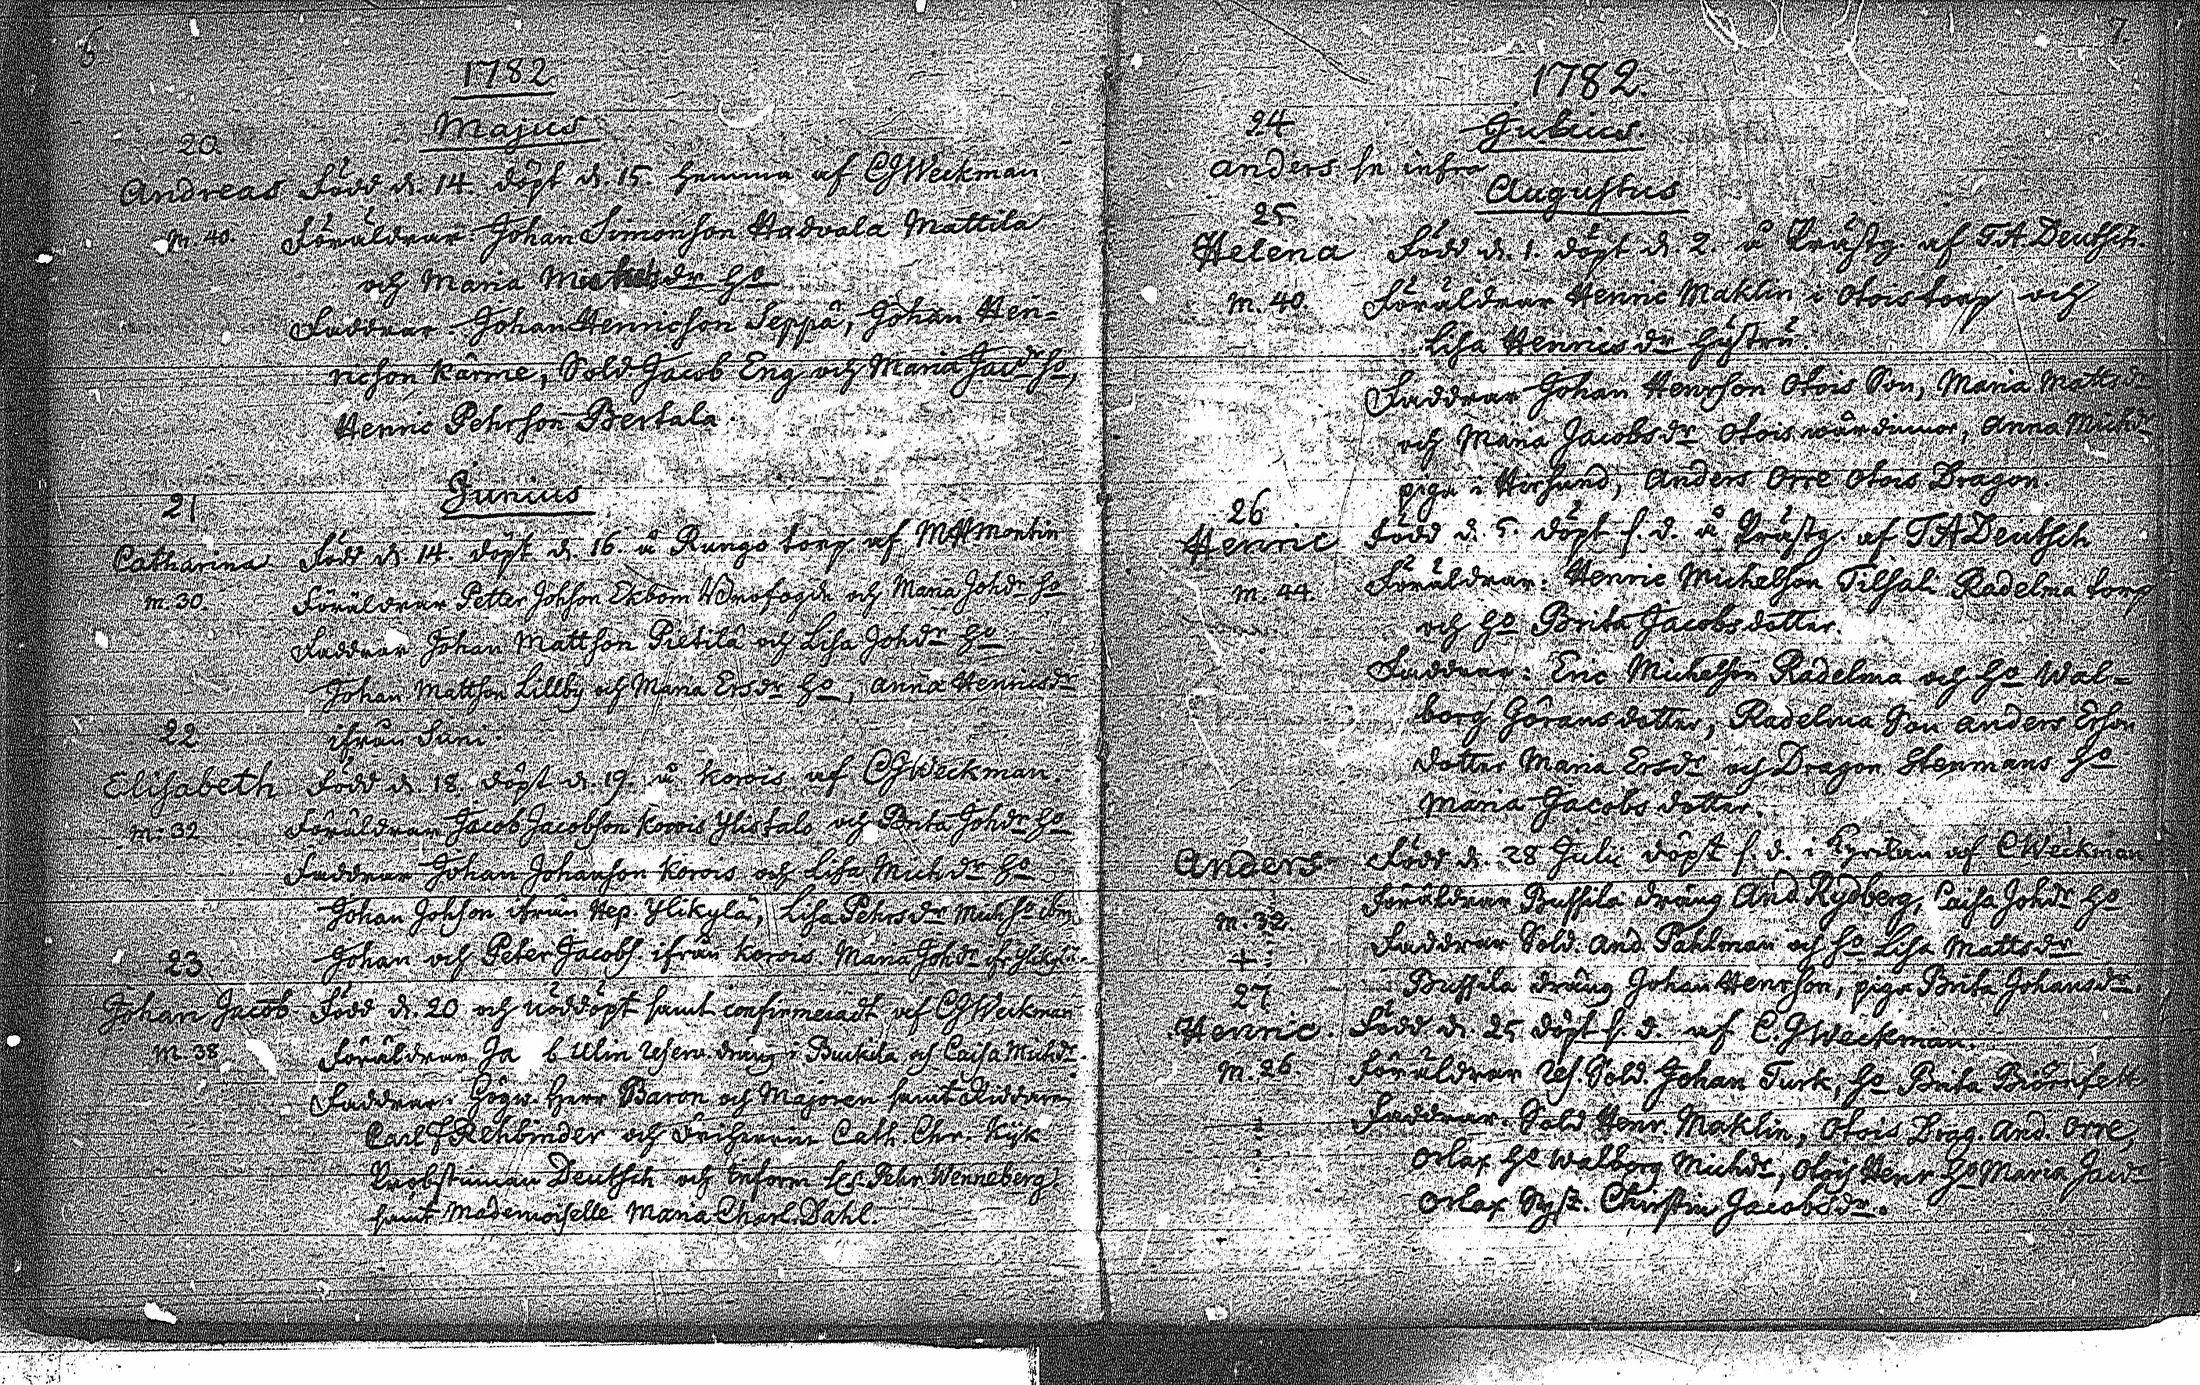 6
1782
Majus
20.
Andreas Född d. 14. döpt d. 15. hemma af CGWeckman
m. 40. Föräldrar Johan Simonson Hadvala Mattila
och Maria Michelsdr Ho
Faddrar. Johan Henricson Seppä, Johan Hen=
ricson Kärme, Sold Jacob Eng och Maria Jacdr Ho,
Henric Pehrson Bertala.
Junius
21
Catharina Född d. 14. döpt d. 16. å Rungo torp af MHMontin
m. 30. Föräldrar Petter Johson Ekbom och Maria Johdr Ho
Faddrar Johan Mattson Pietilä och Lisa Johdr Ho
Johan Mattson Lillby och Maria Ersdr Ho, Anna Henricsdr
ifrån Suni.
22
Elisabeth Född d. 18. döpt d. 19. å Korois af CGWeckman.
m. 32 Föräldrar Jacob Jacobson Korois Ylistalo och Brita Johdr Ho
Faddrar Johan Johanson Korois och Lisa Michdr Ho
Johan Johson ifrån Hep. Ylikylä, Lisa Pehrsdr
Johan och Peter Jacobs. ifrån Korois Maria Johdr
23
Johan Jacob Född d. 20 och nöddöpt samt confirmeradt af CGWeckman
m. 38 Föräldrar Ja b Ulin dräng i och Caisa Michdr.
Faddrar: Herr Baron och Majoren samt Riddaren
Carl Rehbinder och Cath. Chr. Kijk
Deutsch och Inform Pehr Wenneberg
samt Mademoiselle Maria Charl. Dahl.
7.
1782.
24 Julius.
Anders se infra
Augustus
25
Helena Född d. 1. döpt d. 2 å Prästg. af TADeutsch.
m. 40. Föräldrar Henric Maklin i Otois torp och
Lisa Henricsdr Hustru.
Faddrar Johan Henrson Otois Son, Maria Mattsdr
och Maria Jacobsdr Otois wärdinnor, Anna Michdr
piga i Anders Orre Otois Dragon.
26
Henric Född d. 5. döpt s. d. å Prästg. af TADeutsch
m. 44. Föräldrar: Henric Michelson Radelma torp
och Ho Brita Jacobsdotter.
Faddrar: Eric Michelson Radelma och Ho Wal=
borg Göransdotter, Radelma Son Anders Erson
dotter Maria Ersdr och Dragon Stenmans Ho
Maria Jacobsdotter.
Anders Född d. 28 Julii döpt s. d. i Kyrckan af CWeckman
m. 32. Föräldrar dräng And. Rydberg, Caisa Johdr Ho
+ Faddrar Sold. And. Pahlman och Ho Lisa Mattsdr
dräng Johan Henrson, piga Brita Johansdr.
27
Henric. Född d. 25 döpt s. d. af C.GWeckman.
m. 26 Föräldrar Sold. Johan Turk, Ho Brita
Faddrar. Sold Henr. Maklin, Otois Drag. And. Orre,
Orlax Ho Walborg Michdr, Otois Henr Ho Maria Jacdr
Orlax Christin Jacobsdr.